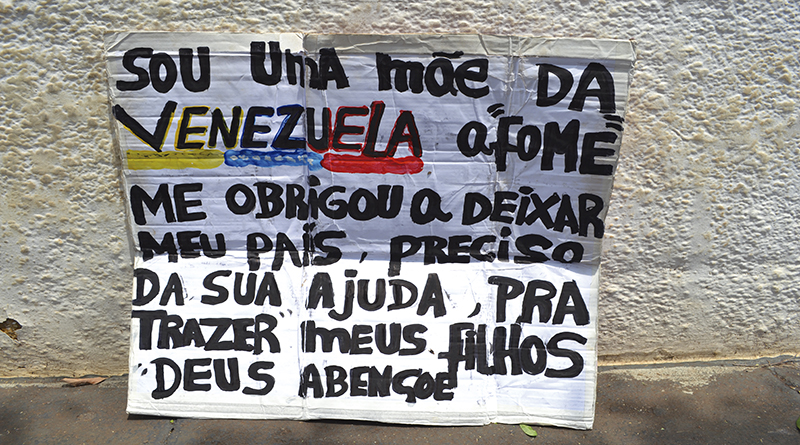 SOU UmA mãe DA
VENEZUELA a "FOME"
ME OBRIGOU a DEIXAR
MEU PAÍS, PRECISO
DA SUA AJUDA, PRA
TRAZER meus FILHOS
"DEUS ABENÇOE